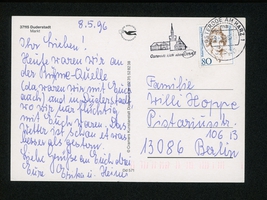 3790 Duderstadt
Markt
8.5.96
Ihr Lieben!
Heute waren wir an
der Rhume-Quelle
(da waren wir mit Euch
auch) und in Duderstadt
wo wir nur flüchtig
mit Euch waren. Das
Wetter ist schön etwas
besser als gestern.
Liebe Grüße an Euch drei
Eure
80
Familie
Willi Hoppe
Pistoriusstr.
106 B
13086 Berlin